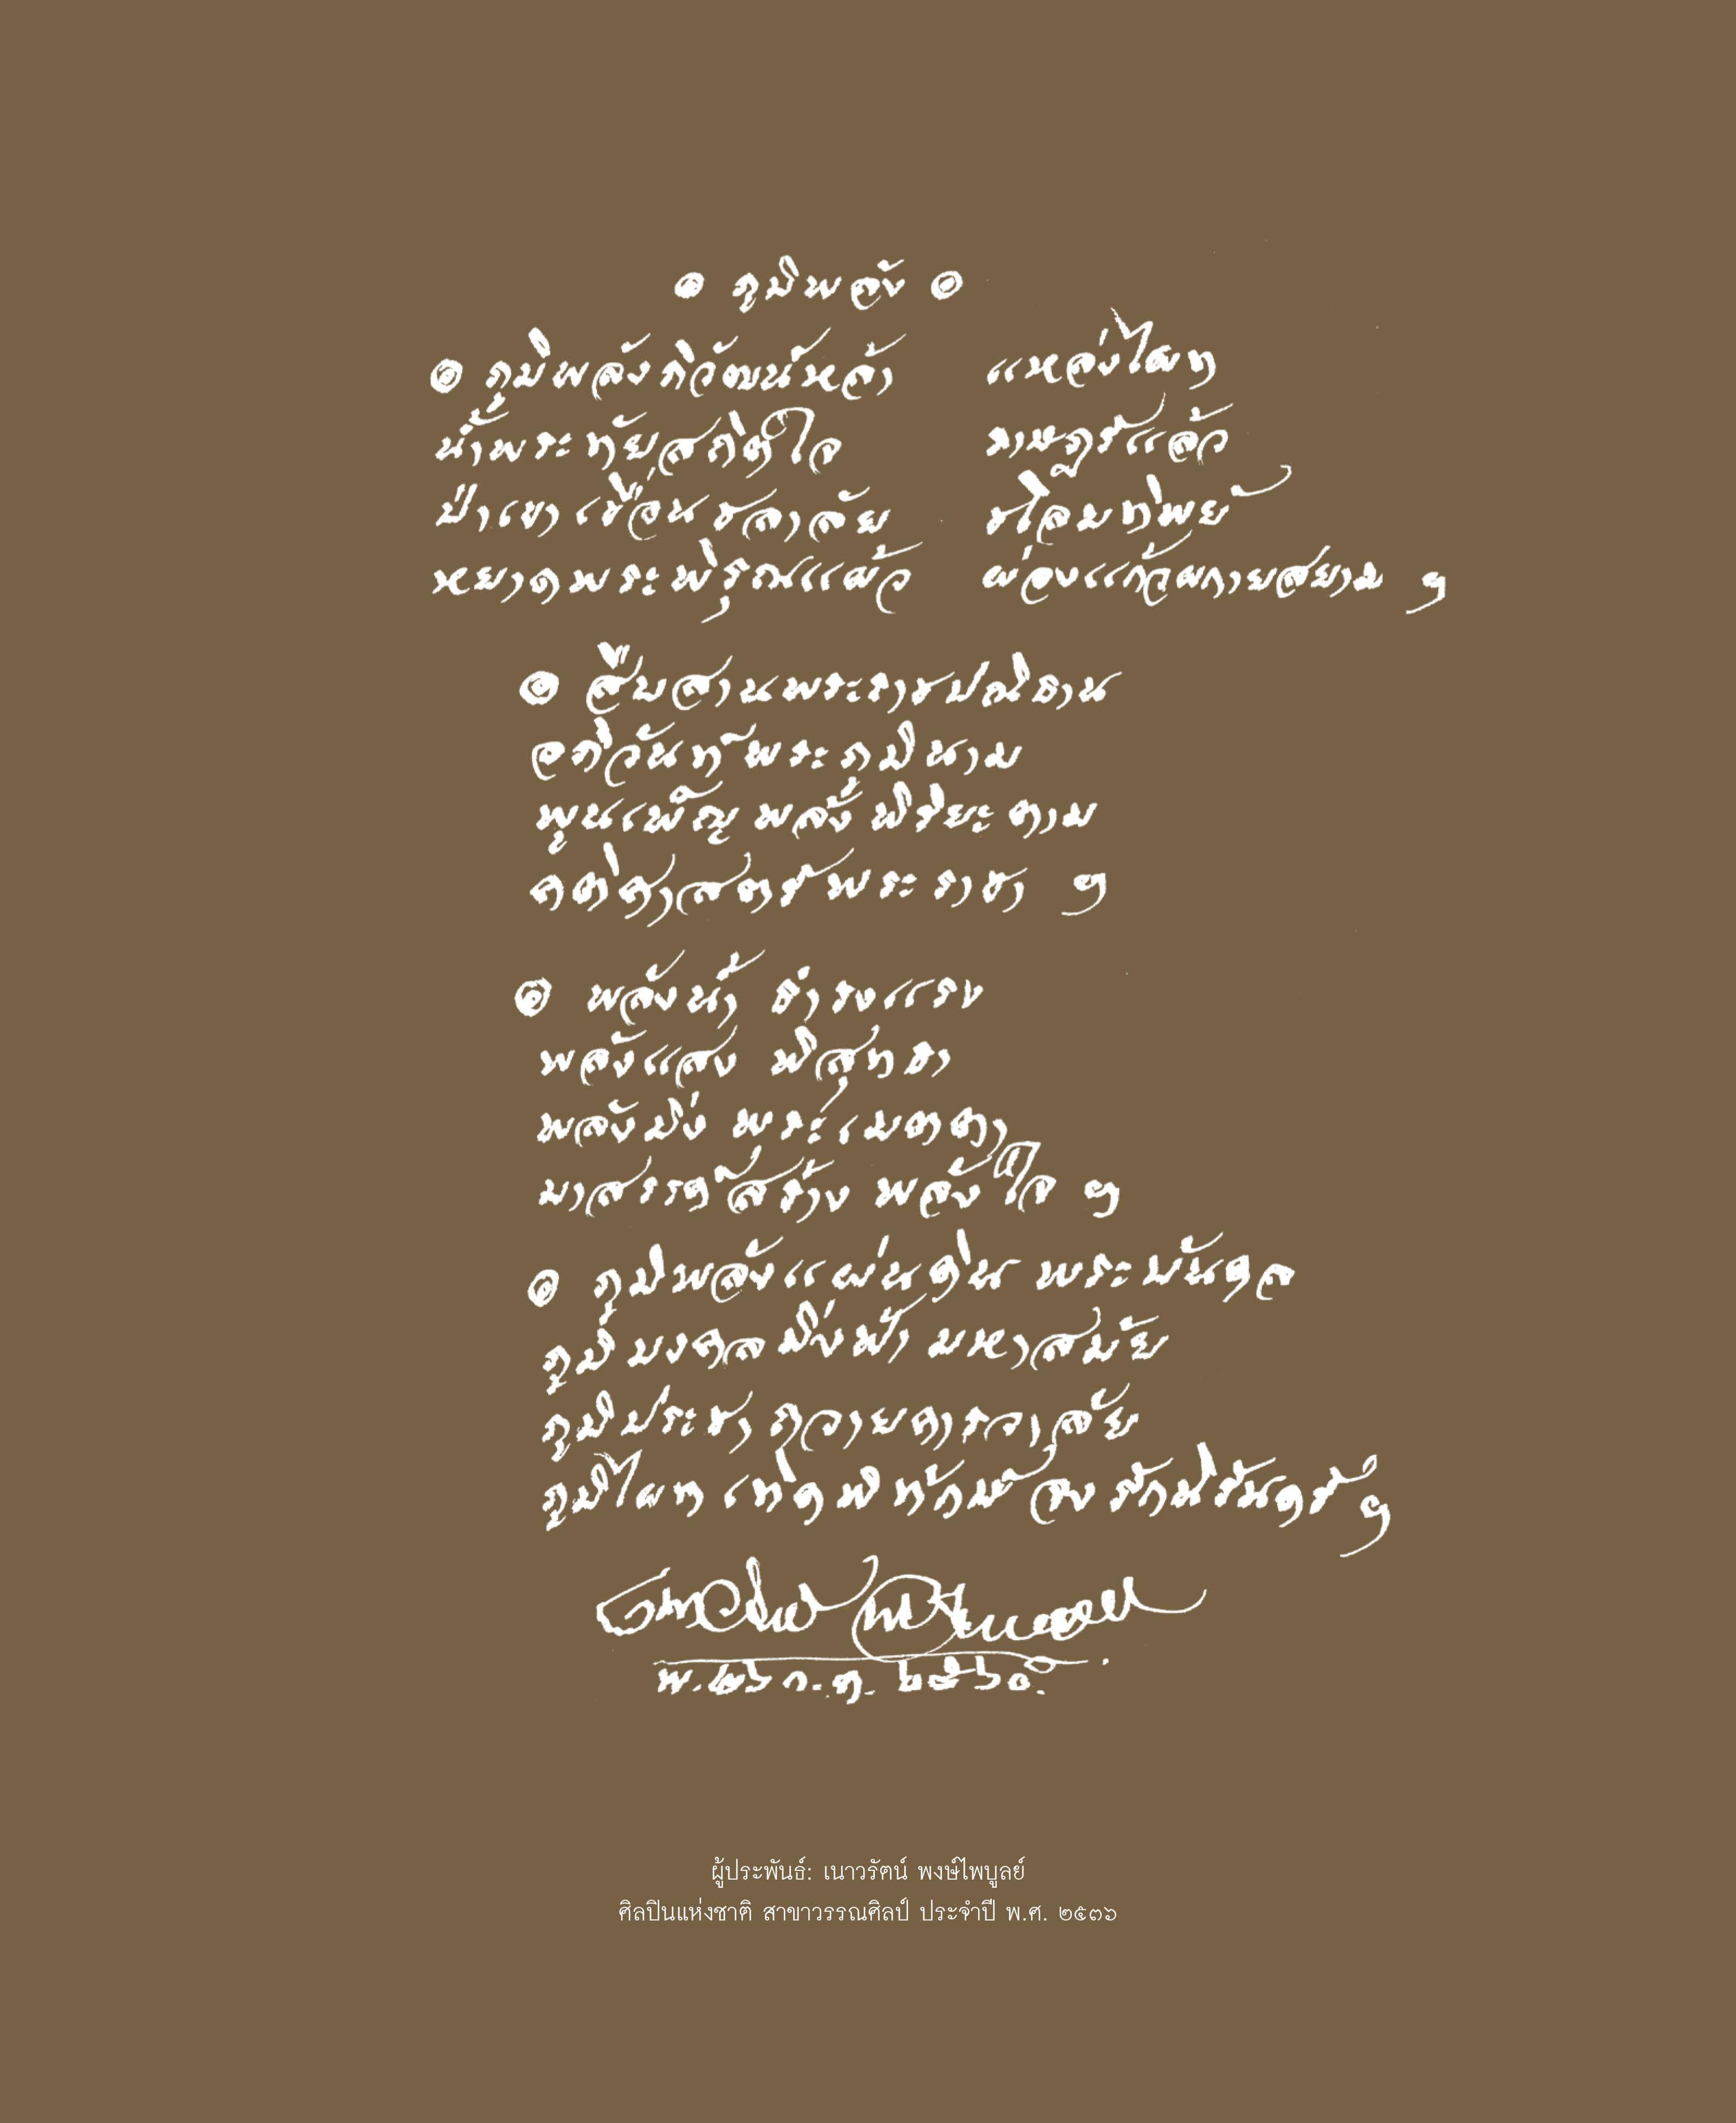 ๏ ภูมิพลัง ๏
๏ ภูมิพลังภิวัฒน์หล้า แหล่งไผท
น้ำพระทัยสถิตใจ ราษฎร์แล้ว
ป่าเขาเขื่อนชลาลัย ชโลมทิพย์
หยาดพระพิรุณแผ้ว ผ่องแก้วผกายสยาม ฯ
๏ สืบสานพระราชปณิธาน
อภิวันท์พระภูมินาม
พูนเพ็ญพลังพิริยะตาม
ติดศาสตร์พระราชา ฯ
๏ พลังน้ำ ธำรงแรง
พลังแสง พิสุทธา
พลังมิ่ง พระเมตตา
มาสรรค์สร้าง พลังใจ ฯ
๏ ภูมิพลังแผ่นดิน พระมิ่งดล
ภูมิมงคลมิ่งฟ้า มหาสมัย
ภูมิประชา ถวายอาลัย
ภูมิไผท เทิดพิทักษ์ องค์ภักดิ์นิรันดร์ ฯ
เนาวรัตน์ พงษ์ไพบูลย์
พ. ๒๖ ก.ค. ๒๕๖๐.
ผู้ประพันธ์: เนาวรัตน์ พงษ์ไพบูลย์
ศิลปินแห่งชาติ สาขาวรรณศิลป์ ประจำปี พ.ศ. ๒๕๓๖